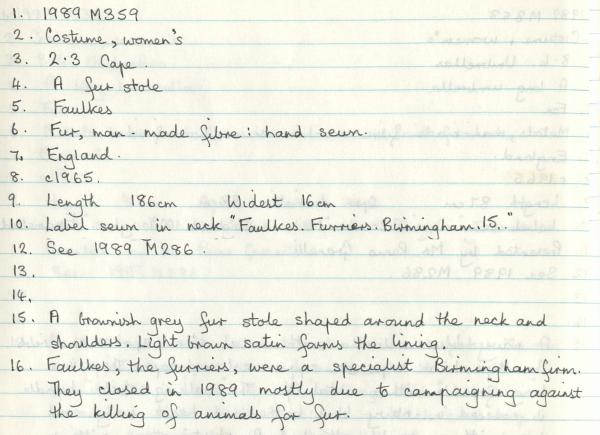 1. 1989 M359
2. Costume, women's
3. 2.3 Cape.
4. A fur stole
5. Faulkes
6. Fur, man-made fibre: hand sewn.
7. England.
8. c1965.
9. Length 186cm Widest 16cm
10. Label sewn in neck "Faulkes. Furriers. Birmingham. 15."
12. See 1989 M286.
13.
14.
15. A brownish grey fur stole shaped around the neck and
shoulders. Light brown satin forms the lining.
16. Faulkes, the furriers, were a specialist Birmingham firm.
They closed in 1989 mostly due to campaigning against
the killing of animals for fur.